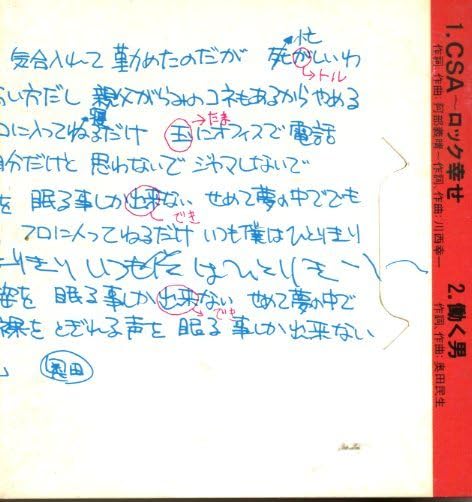 気合入れて 勤めたのだが 死がしいわ
忙
トル
い方だし 親父がらみのコネもあるからやめる
寝
たま
に入ってねるだけ 玉にオフィスで電話
自分だけと 思わないで ジャマしないで
を 眠る事しか出来ない せめて夢の中ででも
でき
フロに入ってねるだけ いつも僕はひとりきり
りきり いつも僕はひとりきり
姿を 眠る事しか出来ない せめて夢の中で
でき
裸を とぎれる声を 眠る事しか出来ない
奥田
1.CSA〜ロック幸せ
作詞、作曲:阿部義晴〜作詞、作曲:川西幸一
2.働く男
作詞、作曲:奥田民生